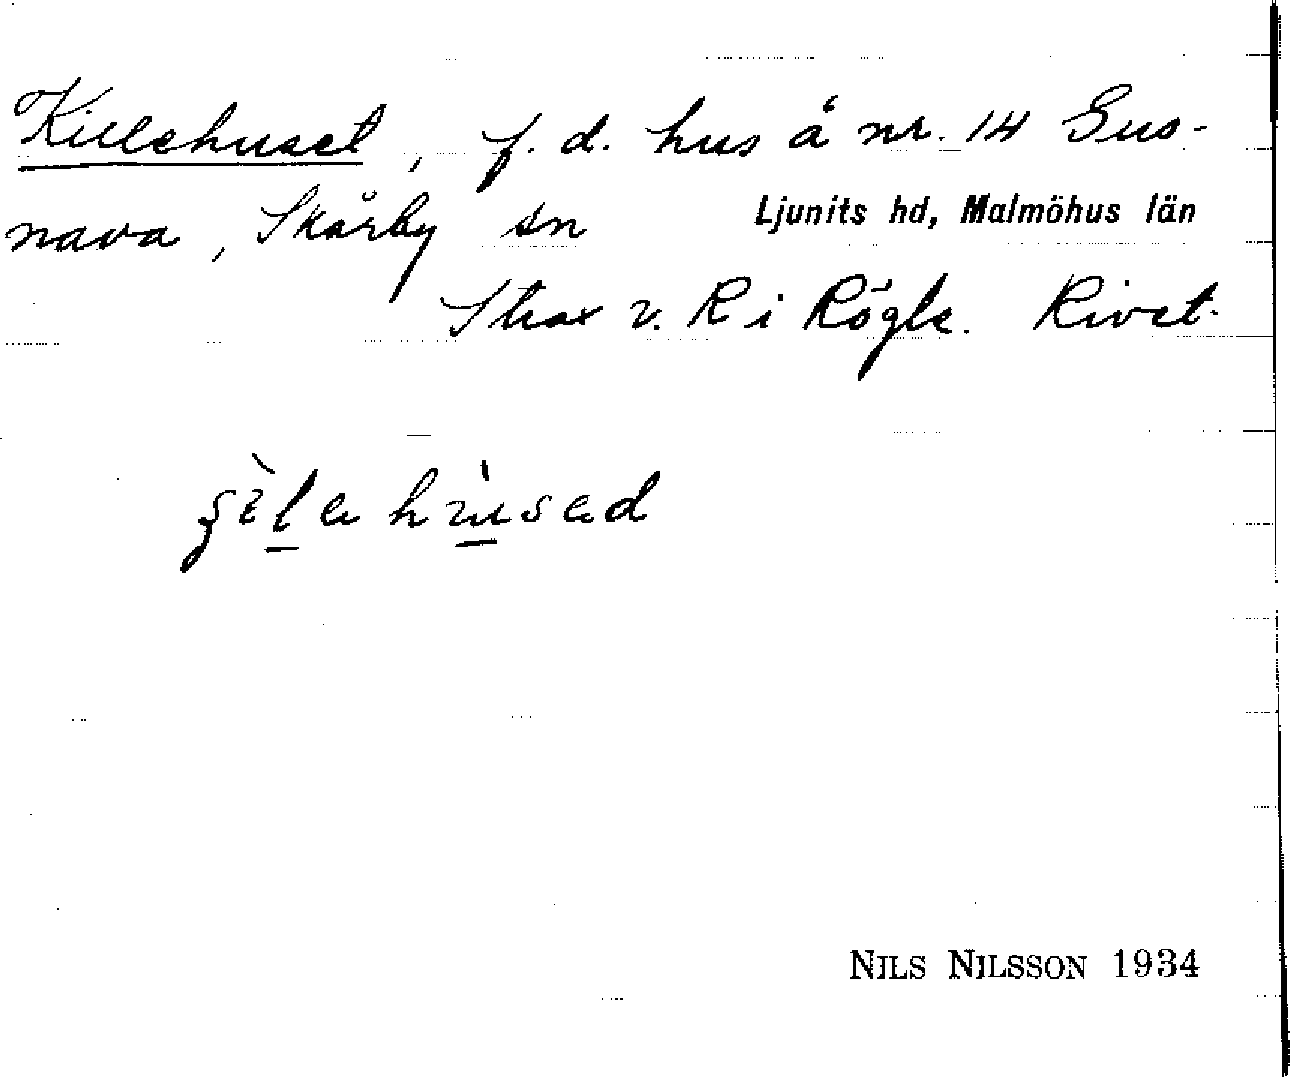 Killehuset, f.d. hus å nr. 14 Gus-
nava, Skårby sn Ljunits hd, Malmöhus län
Strax v. R i Rögla. Rivet.
NILS NILSSON 1934